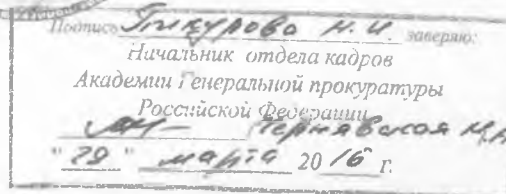 Подпись Пикурова Н. И. заверяю:
Начальник отдела кадров
Академии Генеральной прокуратуры
Российской Федерации
"29" марта 2016 г.